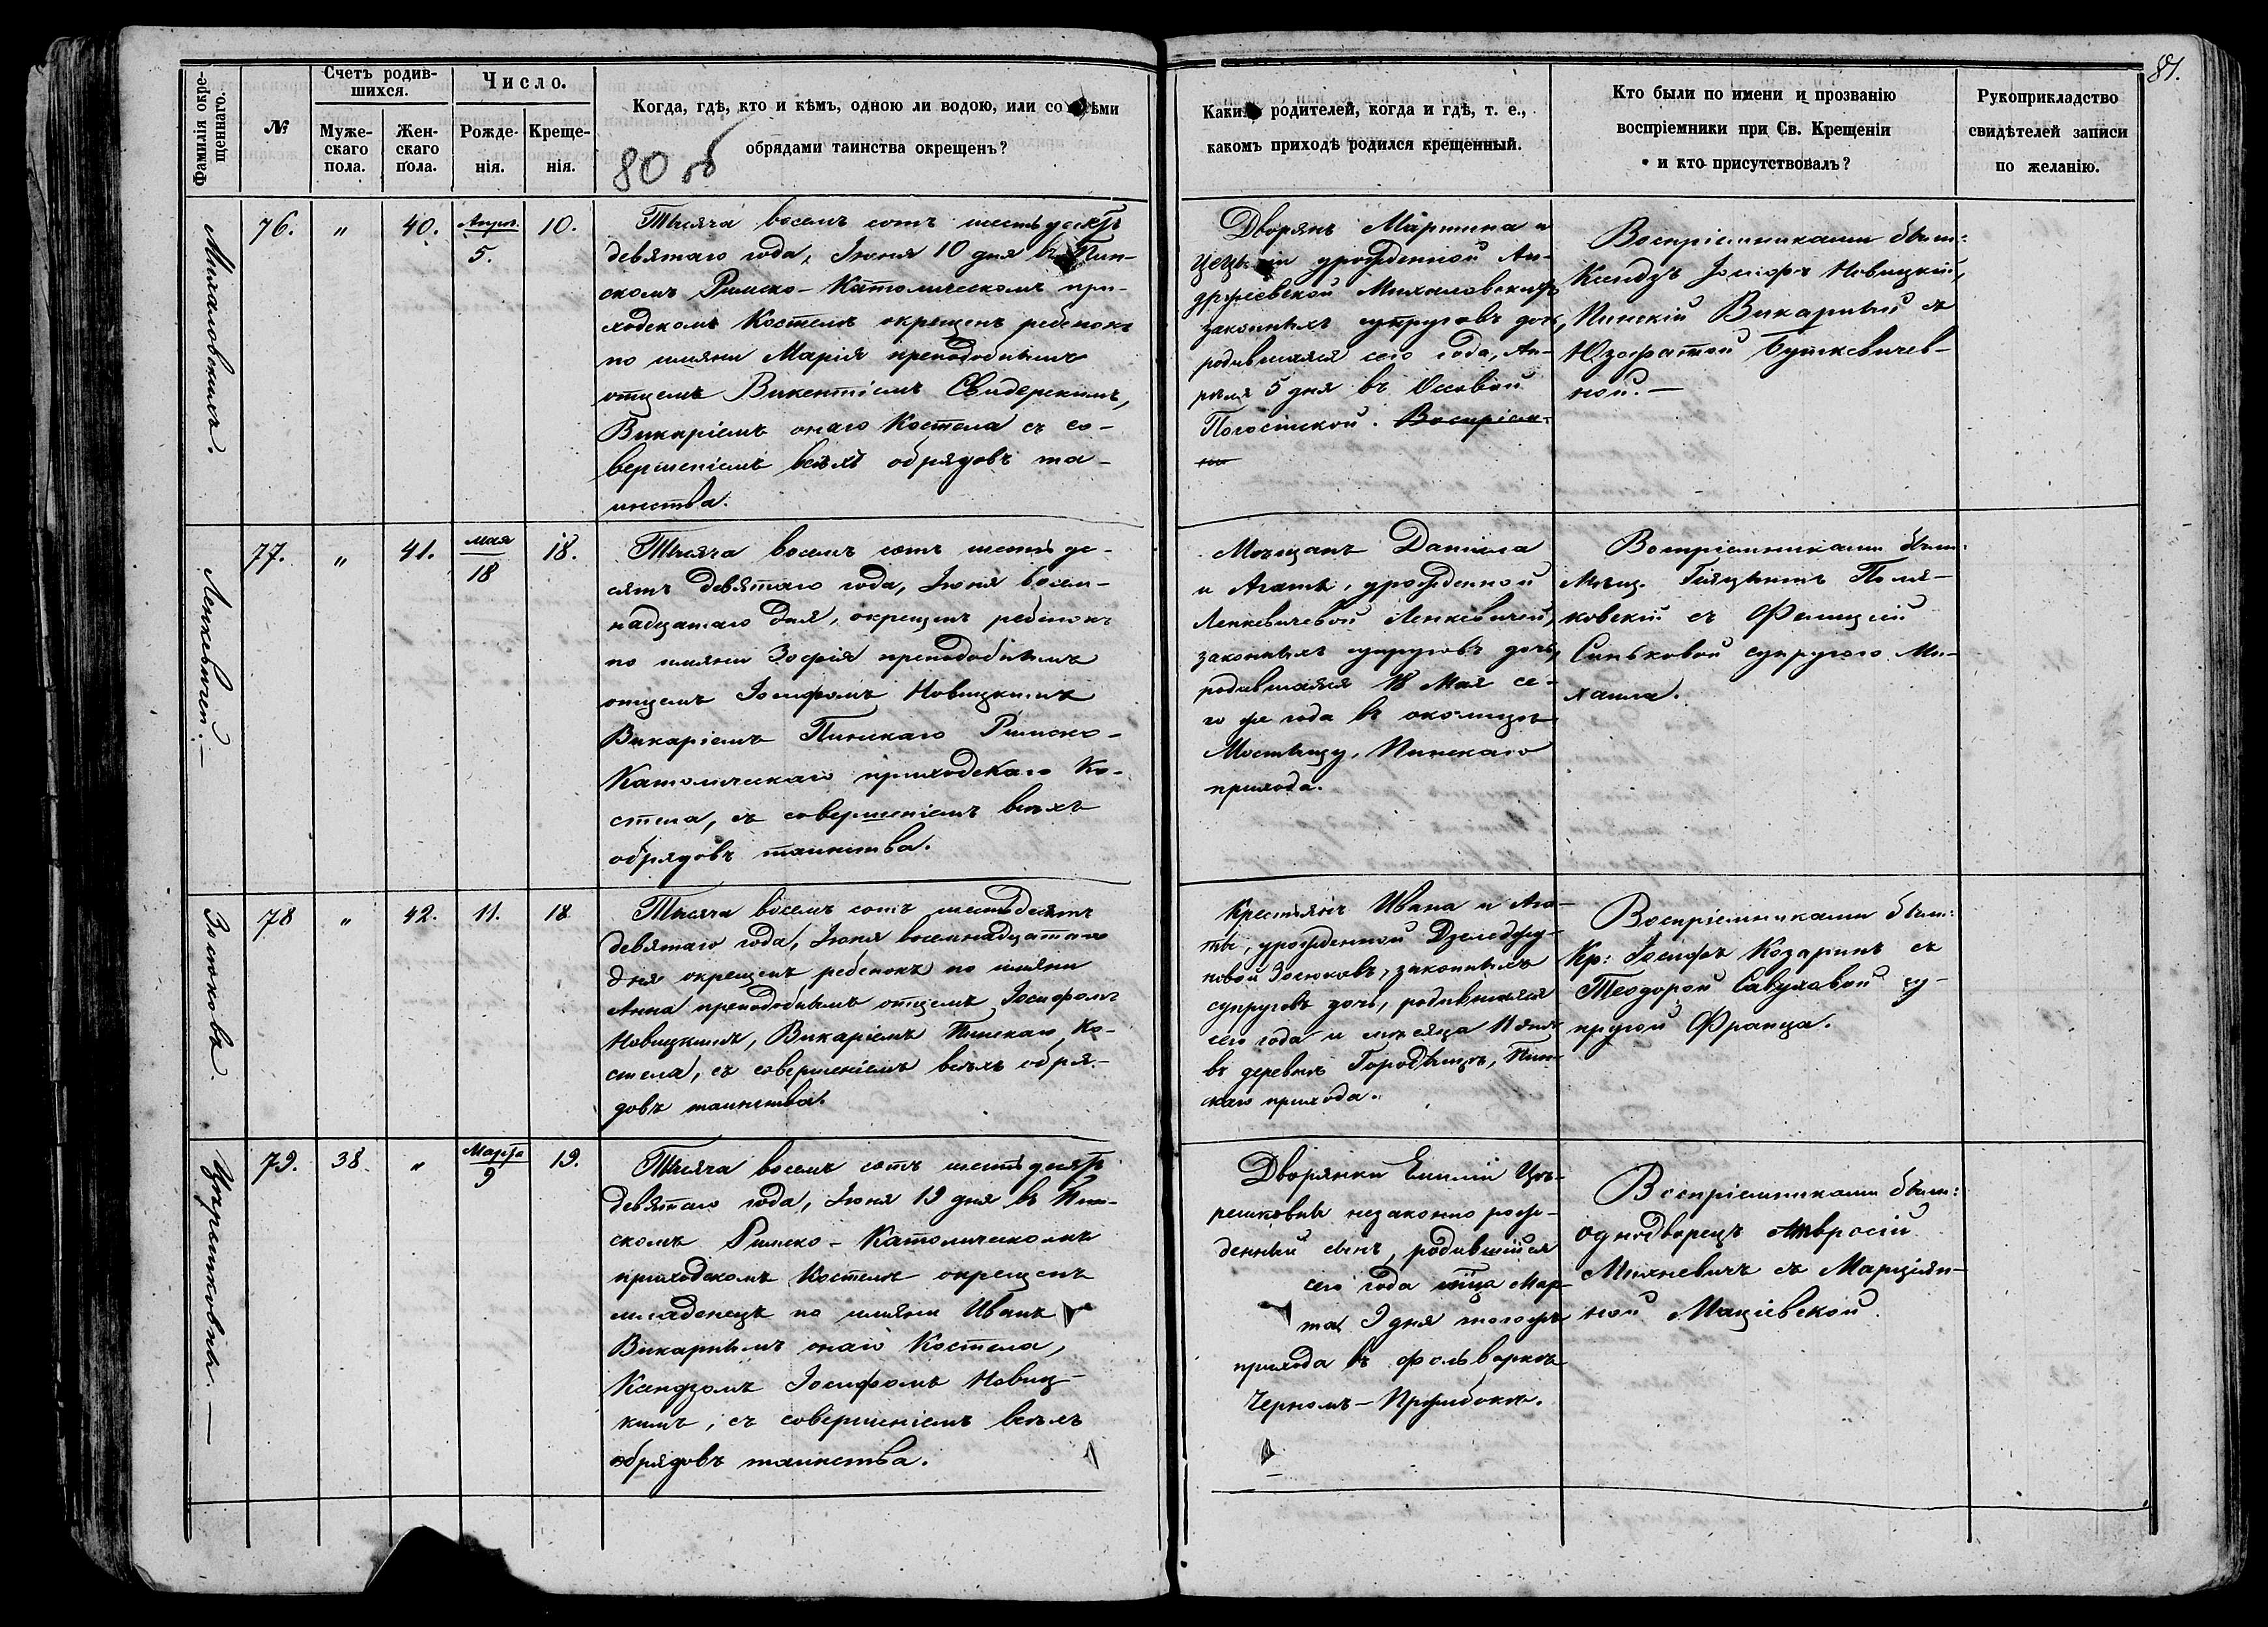 81.
Фамилія окре-
щеннаго.
№
Счетъ родив-
шихся.
Муже-
скаго
пола.
Жен-
скаго
пола.
Число.
Рожде-
нія.
Креще-
нія.
Когда, гдѣ, кто и кѣмъ, одною ли водою, или со всѣми
обрядами таинства окрещенъ?
80 об
Какихъ родителей, когда и гдѣ, т. е.,
какомъ приходѣ родился крещенный.
Кто были по имени и прозванію
воспріемники при Св. Крещеніи
и кто присутствовалъ?
Рукоприкладство
свидѣтелей записи
по желанію.
Михаловскихъ.
76.
"
40.
Апрѣл.
5.
10.
Тысяча восемъ сотъ шестьдесятъ
девятаго года, Іюня 10 дня въ Пин-
скомъ Римско-Католическомъ при-
ходскомъ Костелѣ окрещенъ ребенокъ
по имяни Марія преподобнымъ
отцемъ Викентіемъ Свидерскимъ,
Викаріемъ онаго Костела съ со-
вершеніемъ всѣхъ обрядовъ та-
инства.
Дворянъ Мартина и
урожденной Ан-
држіевской Михаловскихъ
законныхъ супруговъ дочь,
родившаяся сего года, Ап-
рѣля 5 дня въ Оссовой
Погостской. Воспріем-
Воспріемниками были:
Ксендзъ Іосифъ Новицкій,
Пинскій Викарный съ
Юзофатой Буткевичев-
ной.—
Ленкевичей.—
77.
"
41.
мая
18
18.
Тысяча восемъ сотъ шестьде-
сятъ девятаго года, Іюня восем-
надцатаго дня, окрещенъ ребенокъ
по имяни Зофія преподобнымъ
отцемъ Іосифомъ Новицкимъ
Викаріемъ Пинскаго Римско-
Католическаго приходскаго Ко-
стела, съ совершеніемъ всѣхъ
обрядовъ таинства.
Мѣщанъ Даніила
и Агаты, урожденной
Ленкевичевой Ленкевичей,
законныхъ супруговъ дочь,
родившаяся 18 Мая се-
го же года въ околицѣ
Мостыщу, Пинскаго
прихода.
Воспріемниками были:
Мѣщ. Гіяцынтъ Поля-
ковскій съ Фелиціей
Синьковой супругого Ми-
хаила.
Зосюковъ.
78
"
42.
11.
18
Тысяча восемъ сотъ шестьдесятъ
девятаго года, Іюня восемнадцатаго
дня окрещенъ ребенокъ по имяни
Анна преподобнымъ отцемъ Іосифомъ
Новицкимъ, Викаріемъ Пинскаго Ко-
стела, съ совершеніемъ всѣхъ обря-
довъ таинства.
Крестьянъ Ивана и Ага-
ты, урожденной
Зосюковъ, законныхъ
супруговъ дочь, родившаяся
сего года и мѣсяца 11 дня
въ деревнѣ Городыщѣ, Пин-
скаго прихода.
Воспріемниками были:
Кр: Іосифъ Козаринъ съ
Теодорой Савуховой су-
пругой Франца.
Цѣхрынковны.—
79.
38.
"
Марта
9
19.
Тысяча восемъ сотъ шестьдесятъ
девятаго года, Іюня 19 дня въ Пин-
скомъ Римско-Католическомъ
приходскомъ Костелѣ окрещенъ
младенецъ по имяни Иванъ
Викарнымъ онаго Костела,
Ксендзомъ Іосифомъ Новиц-
кимъ, съ совершеніемъ всѣхъ
обрядовъ таинства.
Дворянки Емиліи
незаконно рож-
денный сынъ, родившійся
сего года мѣца Мар-
та 9 дня тогожъ
прихода въ фольваркѣ
Черномъ-
Воспріемниками были:
однодворецъ Амвросій
Михневичъ съ Марціян-
ной Маціевской.